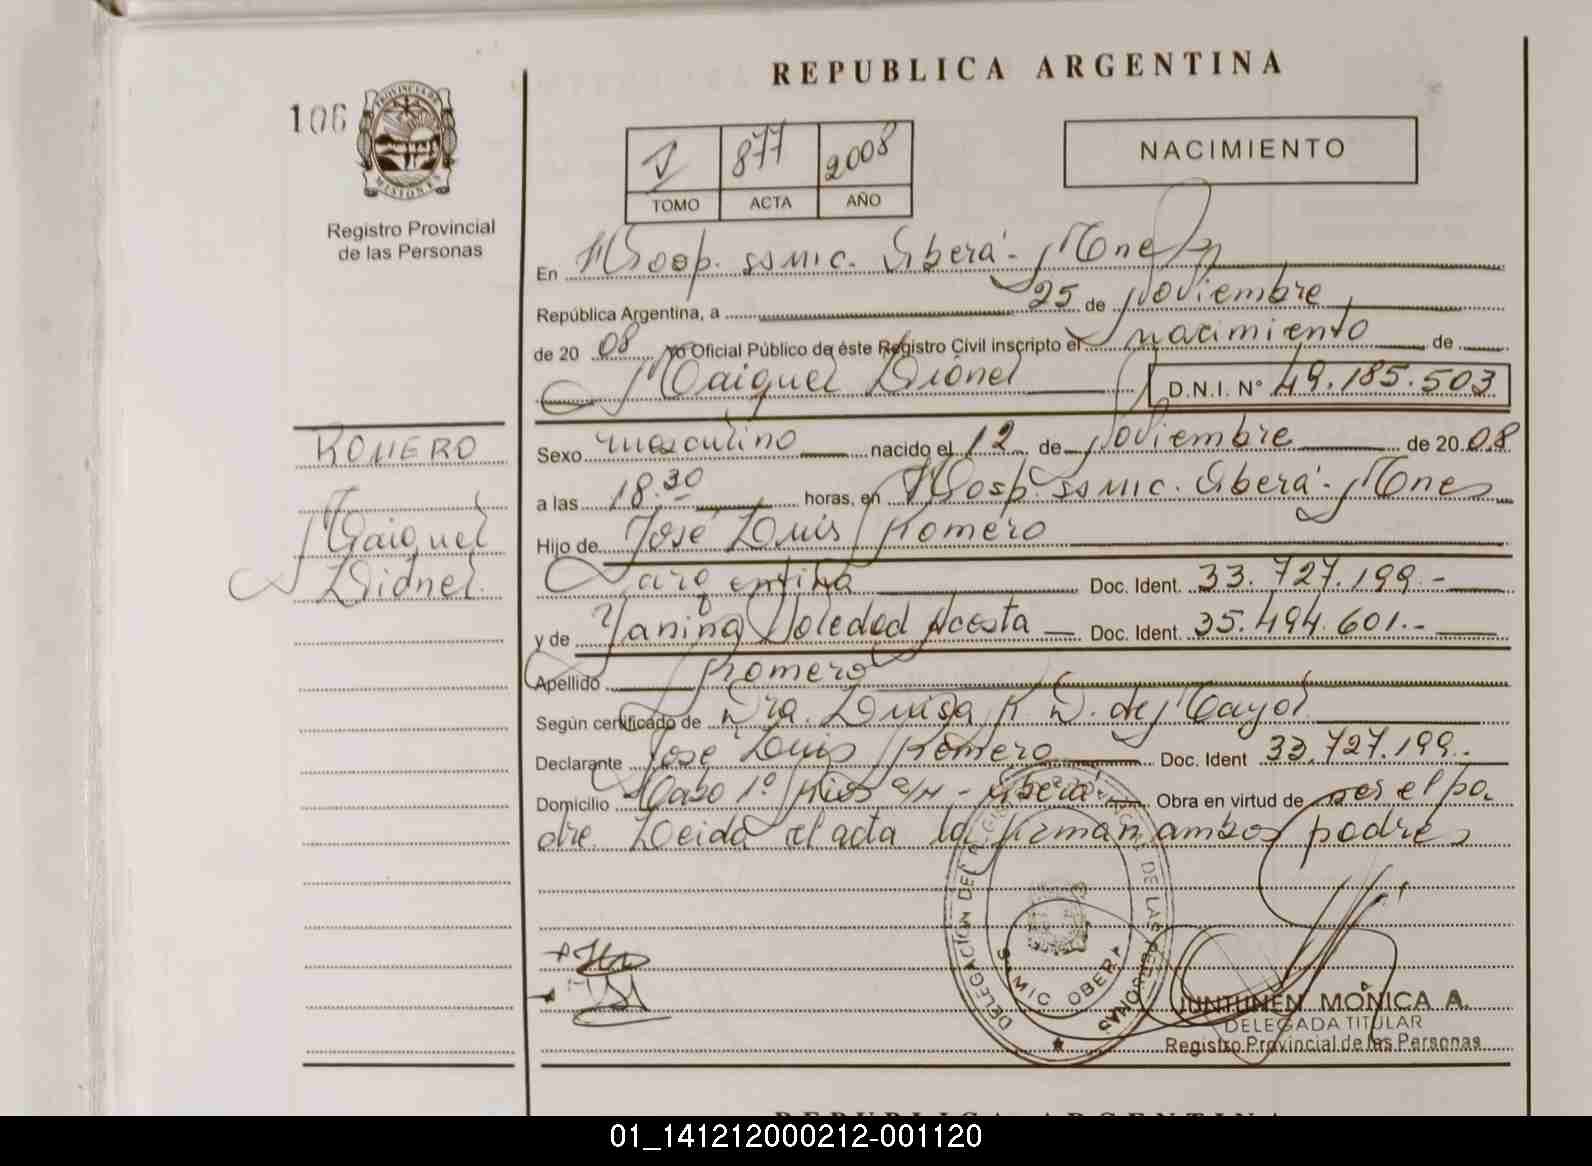 REPUBLICA ARGENTINA
106
PROVINCIA DE
MISIONES
Registro Provincial
de las Personas
I 877 2008
TOMO ACTA AÑO
NACIMIENTO
En Hosp. SSMIC. Oberá - Mnes
República Argentina, a 25 de Noviembre
de 20 08 Yo Oficial Público de éste Registro Civil inscripto el nacimiento de
Maiquel Lionel D.N.I. N° 49.185.503
ROMERO
Maiquel
Lionel.
Sexo masculino nacido el 12 de Noviembre de 20 08
a las 18.30 horas, en Hosp. SSMIC. Oberá - Mnes
Hijo de José Luis Romero
argentina Doc. Ident. 33.727.199.-
y de Yanina Soledad Acosta Doc. Ident. 35.494.601.-
Apellido Romero
Según certificado de Dra. Luisa K. D. de
Declarante José Luis Romero Doc. Ident 33.727.199.-
Domicilio 1° s/n - Oberá Obra en virtud de ser el pa
dre. Leida el acta la firman ambos padres
DELEGACIÓN DEL REGISTRO PROVINCIAL DE LAS PERSONAS
S. MIC OBERA
JUNTUNEN MÓNICA A.
DELEGADA TITULAR
Registro Provincial de las Personas
REPUBLICA ARGENTINA
01_141212000212-001120